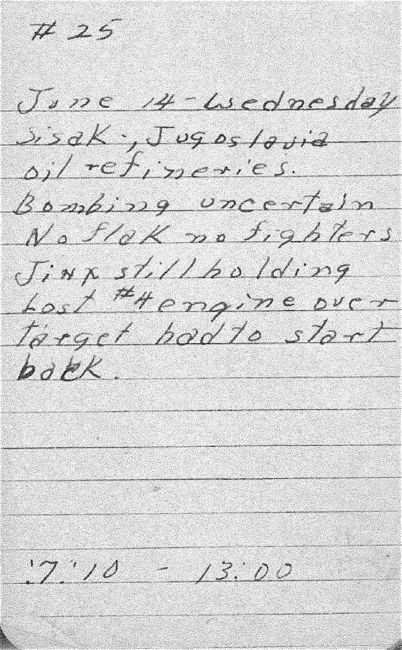 # 25
June 14 - Wednesday
Sisak., Jugoslavia
oil refineries.
Bombing uncertain
No flak no fighters
Jinx still holding
Lost #4 engine over
target had to start
back.
:7:10 - 13:00